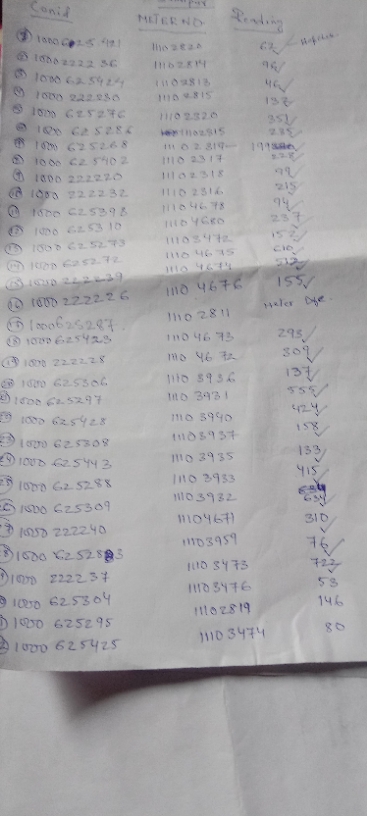 Conid METERNO Reading
1000625421 11102820 62
1000222236 11102814 96
1000625424 11102813 46
1000222230 11102815 137
1000625276 11102320 351
1000625286 11102915 235
1000625268 11102319
1000625402 11102317 228
1000222220 11102318 99
1000222232 11102316 215
1000625398 11104678 94
1000625310 11104680 237
1000625273 11103472 152
1000625272 11104675 610
1000222239 11104674 512
16 1000222226 11104676 155
1000625287 11102811 Meter Dfe.
1000625423 11104673 293
1000222228 11104672 309
1000625306 11103936 137
1000625297 11103931 555
1000625428 11103940 424
1000625308 11103937 158
1000625443 11103935 133
1000625288 11103933 415
1000625309 11103932 634
1000222240 11104671 310
11103959 76
1000222237 11103473 722
1000625304 11103476 53
1000625295 11102819 146
1000625425 11103474 80